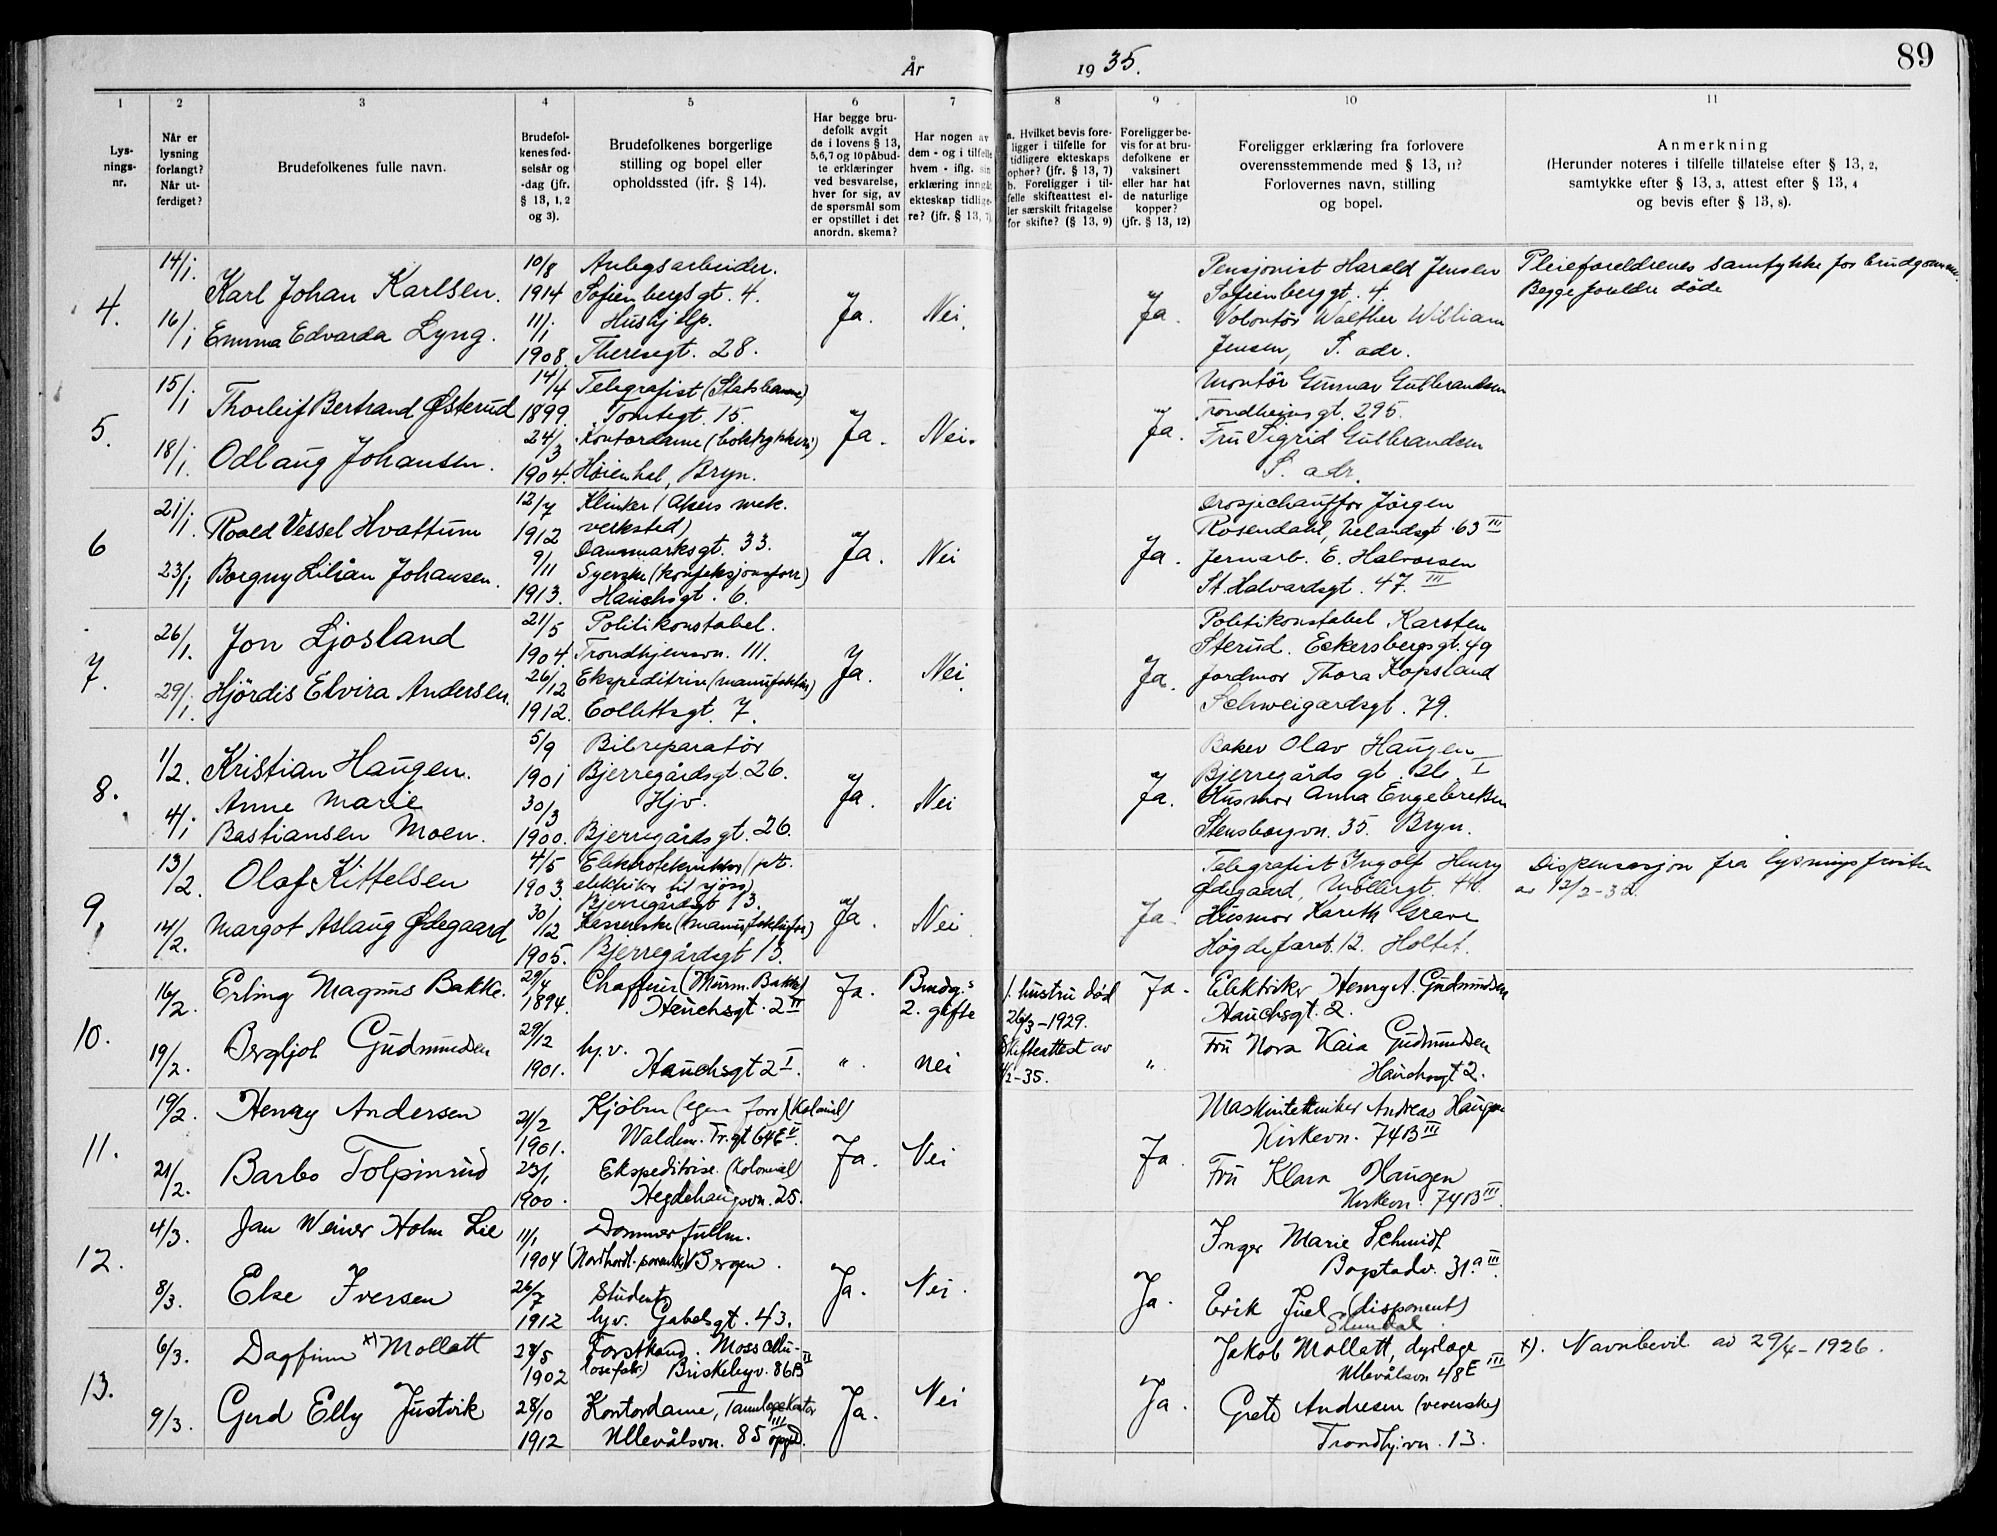 89
År 1935.
1 2 3 4 5 6 7 8 9 10 11
Lys-
nings-
nr.
Når er
lysning
forlangt?
Når ut-
ferdiget?
Brudefolkenes fulle navn.
Brudefol-
kenes fød-
selsår og
-dag (jfr.
§ 13, 1, 2
og 3).
Brudefolkenes borgerlige
stilling og bopel eller
opholdssted (ifr. § 14).
Har begge bru-
defolk avgit
de i lovens § 13,
5,6,7 og 10 påbud-
te erklæringer
ved besvarelse,
hver for sig, av
de spørsmål som
er opstillet i det
anordn. skema?
Har nogen av
dem - og i tilfelle
hvem - iflg. sin
erklæring inngåt
ekteskap tidlige-
re? (jfr. § 13, 7)
a. Hvilket bevis fore-
ligger i tilfelle for
tidligere ekteskaps
ophør? (jfr. § 13, 7)
b. Foreligger i til-
felle skifteattest el-
ler særskilt fritagelse
for skifte? (§ 13, 9)
Foreligger be-
vis for at bru-
defolkene er
vaksinert
eller har hat
de naturlige
kopper?
(jfr. § 13, 12)
Foreligger erklæring fra forlovere
overensstemmende med § 13, 11?
Forlovernes navn, stilling
og bopel.
Anmerkning
(Herunder noteres i tilfelle tillatelse efter § 13, 2,
samtykke efter § 13, 3, attest efter § 13, 4
og bevis efter § 13, 8).
4.
14/1.
16/1
Karl Johan Karlsen.
Emma Edvarda Lyng.
10/8
1914
11/1
1908
Anlegsarbeider.
Sofienbergsgt. 4.
Hushjelp.
Theresegt. 28.
Ja.
Nei.
Ja.
Pensjonist Harald Jensen
Sofienberggt. 4.
Volontør Walther William
Jensen, S. adr.
Pleieforeldrenes samtykke for brudgommen.
Begge foreldre døde
5.
15/1
18/1.
Thorleif Bertrand Østerud
Odlaug Johansen.
14/4
1899.
24/3
1904.
Telegrafist (Statsbanene)
Tomtegt. 15.
Kontordame (boktrykkeri)
Høienhal, Bryn.
Ja.
Nei.
Ja.
Montør Gunnar Gulbrandsen
Trondheimsgt. 295.
Fru Sigrid Gulbrandsen
S. adr.
6
21/1.
23/1
Roald Vessel Hvattum
Borgny Lilian Johansen.
12/7
1912
9/11
1913.
Klinker (Akers mek.
verksted)
Danmarksgt. 33.
Syerske (konfeksjonsforr)
Hauchsgt. 6.
Ja.
Nei
Ja.
Drosjechauffør Jörgen
Rosendahl, Velandsgt. 63 III
Jernarb. E. Halvorsen
St. Halvardsgt. 47. III
7.
26/1.
29/1.
Jon Ljosland
Hjördis Elvira Andersen.
21/5
1904.
26/12
1912.
Politikonstabel.
Trondhjemsvn. 111.
Ekspeditrise (manufaktur)
Collettsgt. 7.
Ja.
Nei.
Ja.
Politikonstabel Karsten
Sterud. Eckersbergsgt. 49
Jordmor Thora Kopsland
Schweigardsgt. 79.
8.
1/2.
4/1
Kristian Haugen.
Anne Marie
Bastiansen Moen.
5/9
1901
30/3
1900.
Bilreparatör
Bjerregårdsgt. 26.
Hjv.
Bjerregårdsgt. 26.
Ja.
Nei
Ja.
Baker Olav Haugen
Bjerregårds gt. 26. I
Husmor Anna Engebretsen
Stensbergvn. 35. Bryn.
9.
13/2.
14/2.
Olaf Kittelsen
Margot Aslaug Ødegaard
4/5
1903.
30/12
1905.
Elektrotekniker (p.t.
elektriker til sjøss)
Bjerregårdsgt. 13.
Kassererske (manufakturforr)
Bjerregårdsgt 13.
Ja
Nei.
Ja.
Telegrafist Ingolf Henry
Ødegaard, Möllergt. 40.
Husmor Kareth Grave
Högdefaret. 12. Holtet.
Dispensasjon fra lysningsfristen
av 12/2-35.
10.
16/2.
19/2.
Erling Magnus Bakke.
Bergljot Gudmundsen
29/4
1894.
29/12
1901.
Chaffeur (Murm. Bakke)
Hauchsgt. 2 II
hj.v.
Hauchsgt 2 I.
Ja.
".
Brudg.s
2. gifte
nei
1. hustru död
26/3-1929.
Skifteattest av
4/2-35.
Ja.
"
Elektriker Henry A. Gudmundsen
Hauchsgt. 2.
Fru Nora Kaia Gudmundsen
Hauchsgt 2.
11.
19/2.
21/2.
Henry Andersen
Barbo Tolpinrud
21/2
1901.
23/1
1900.
Kjøbm (egen forr.) (Kolonial)
Waldem. Tr. gt 64E V.
Ekspeditrise. (Kolonial)
Hegdehaugsvn. 25.
Ja.
Nei
Ja.
Maskintekniker Andreas Haugen
Kirkevn. 74B III
Fru Klara Haugen
Kirkevn. 74B III.
12.
4/3.
8/3.
Jan Weiner Holm Lie
Else Iversen
11/1
1904
26/7
1912
Dommerfullm.
(Nordhordl. sorenskr) Bergen.
Student
hjv. Gabelsgt. 43.
Ja.
Nei.
Ja.
Inger Marie Schmidt
Bogstadv. 31.a III.
Erik Juel (disponent)
13.
6/3.
9/3.
Dagfinn x) Mollatt
Gerd Elly Justvik
28/5
1902
28/10
1912
Forstkand. Moss cellu-
losefabr.) Briskebyv. 86B II
Kontordame, Tannlægekontor
Ullevålsvn. 85 III opg.
Ja.
Nei
Ja.
Jakob Mollatt, dyrlæge
Ullevålsvn 48E III
Grete Andresen (veverske)
Trondhj.vn. 13.
x). Navnbevil av 29/4-1926.